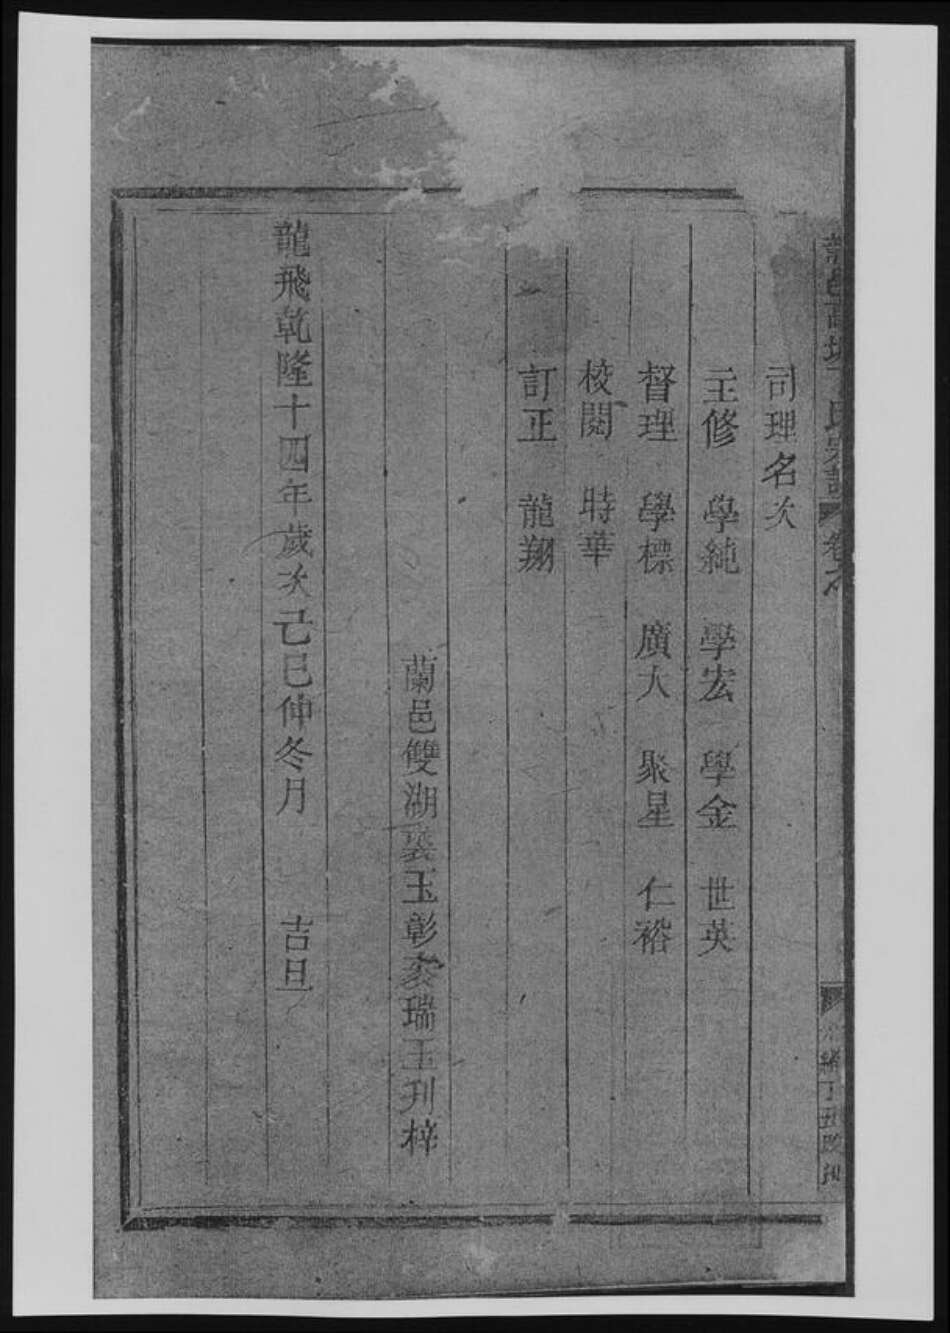 司理名次
主修 學純 學宏 學金 世英
督理 學標 廣大 聚星 仁裕
校閱 時華
訂正 龍翔
蘭邑雙湖裴玉彰 瑞玉刋梓
龍飛乾隆十四年歲次己巳仲冬月 吉旦
氏宗譜 卷
光緒丁丑改刊